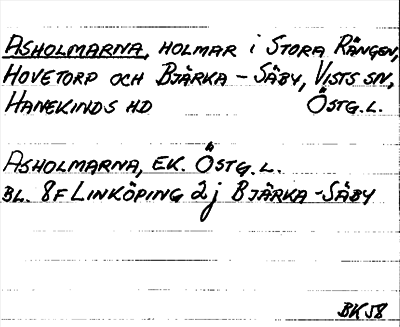 ASHOLMARNA, HOLMAR i STORA RÄNGEN,
HOVETORP OCH BJÄRKA-SÄBY, VISTS SN,
HANEKINDS HD ÖSTG.L.
ASHOLMARNA, EK. ÖSTG.L.
BL. 8F LINKÖPING 2j BJÄRKA-SÄBY
BK58